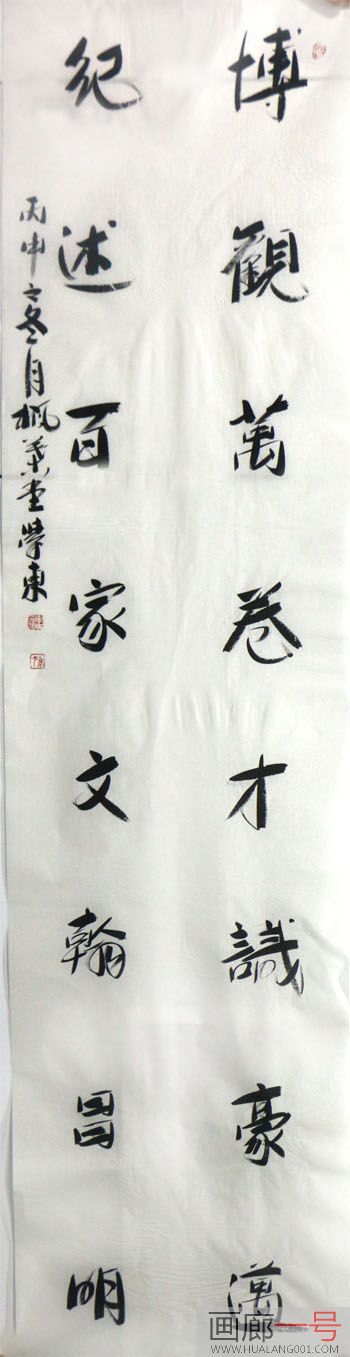 博觀萬卷才識豪邁
紀述百家文翰昌明
丙申之冬月楓葉堂學東
画廊一号
WWW.HUALANG001.COM